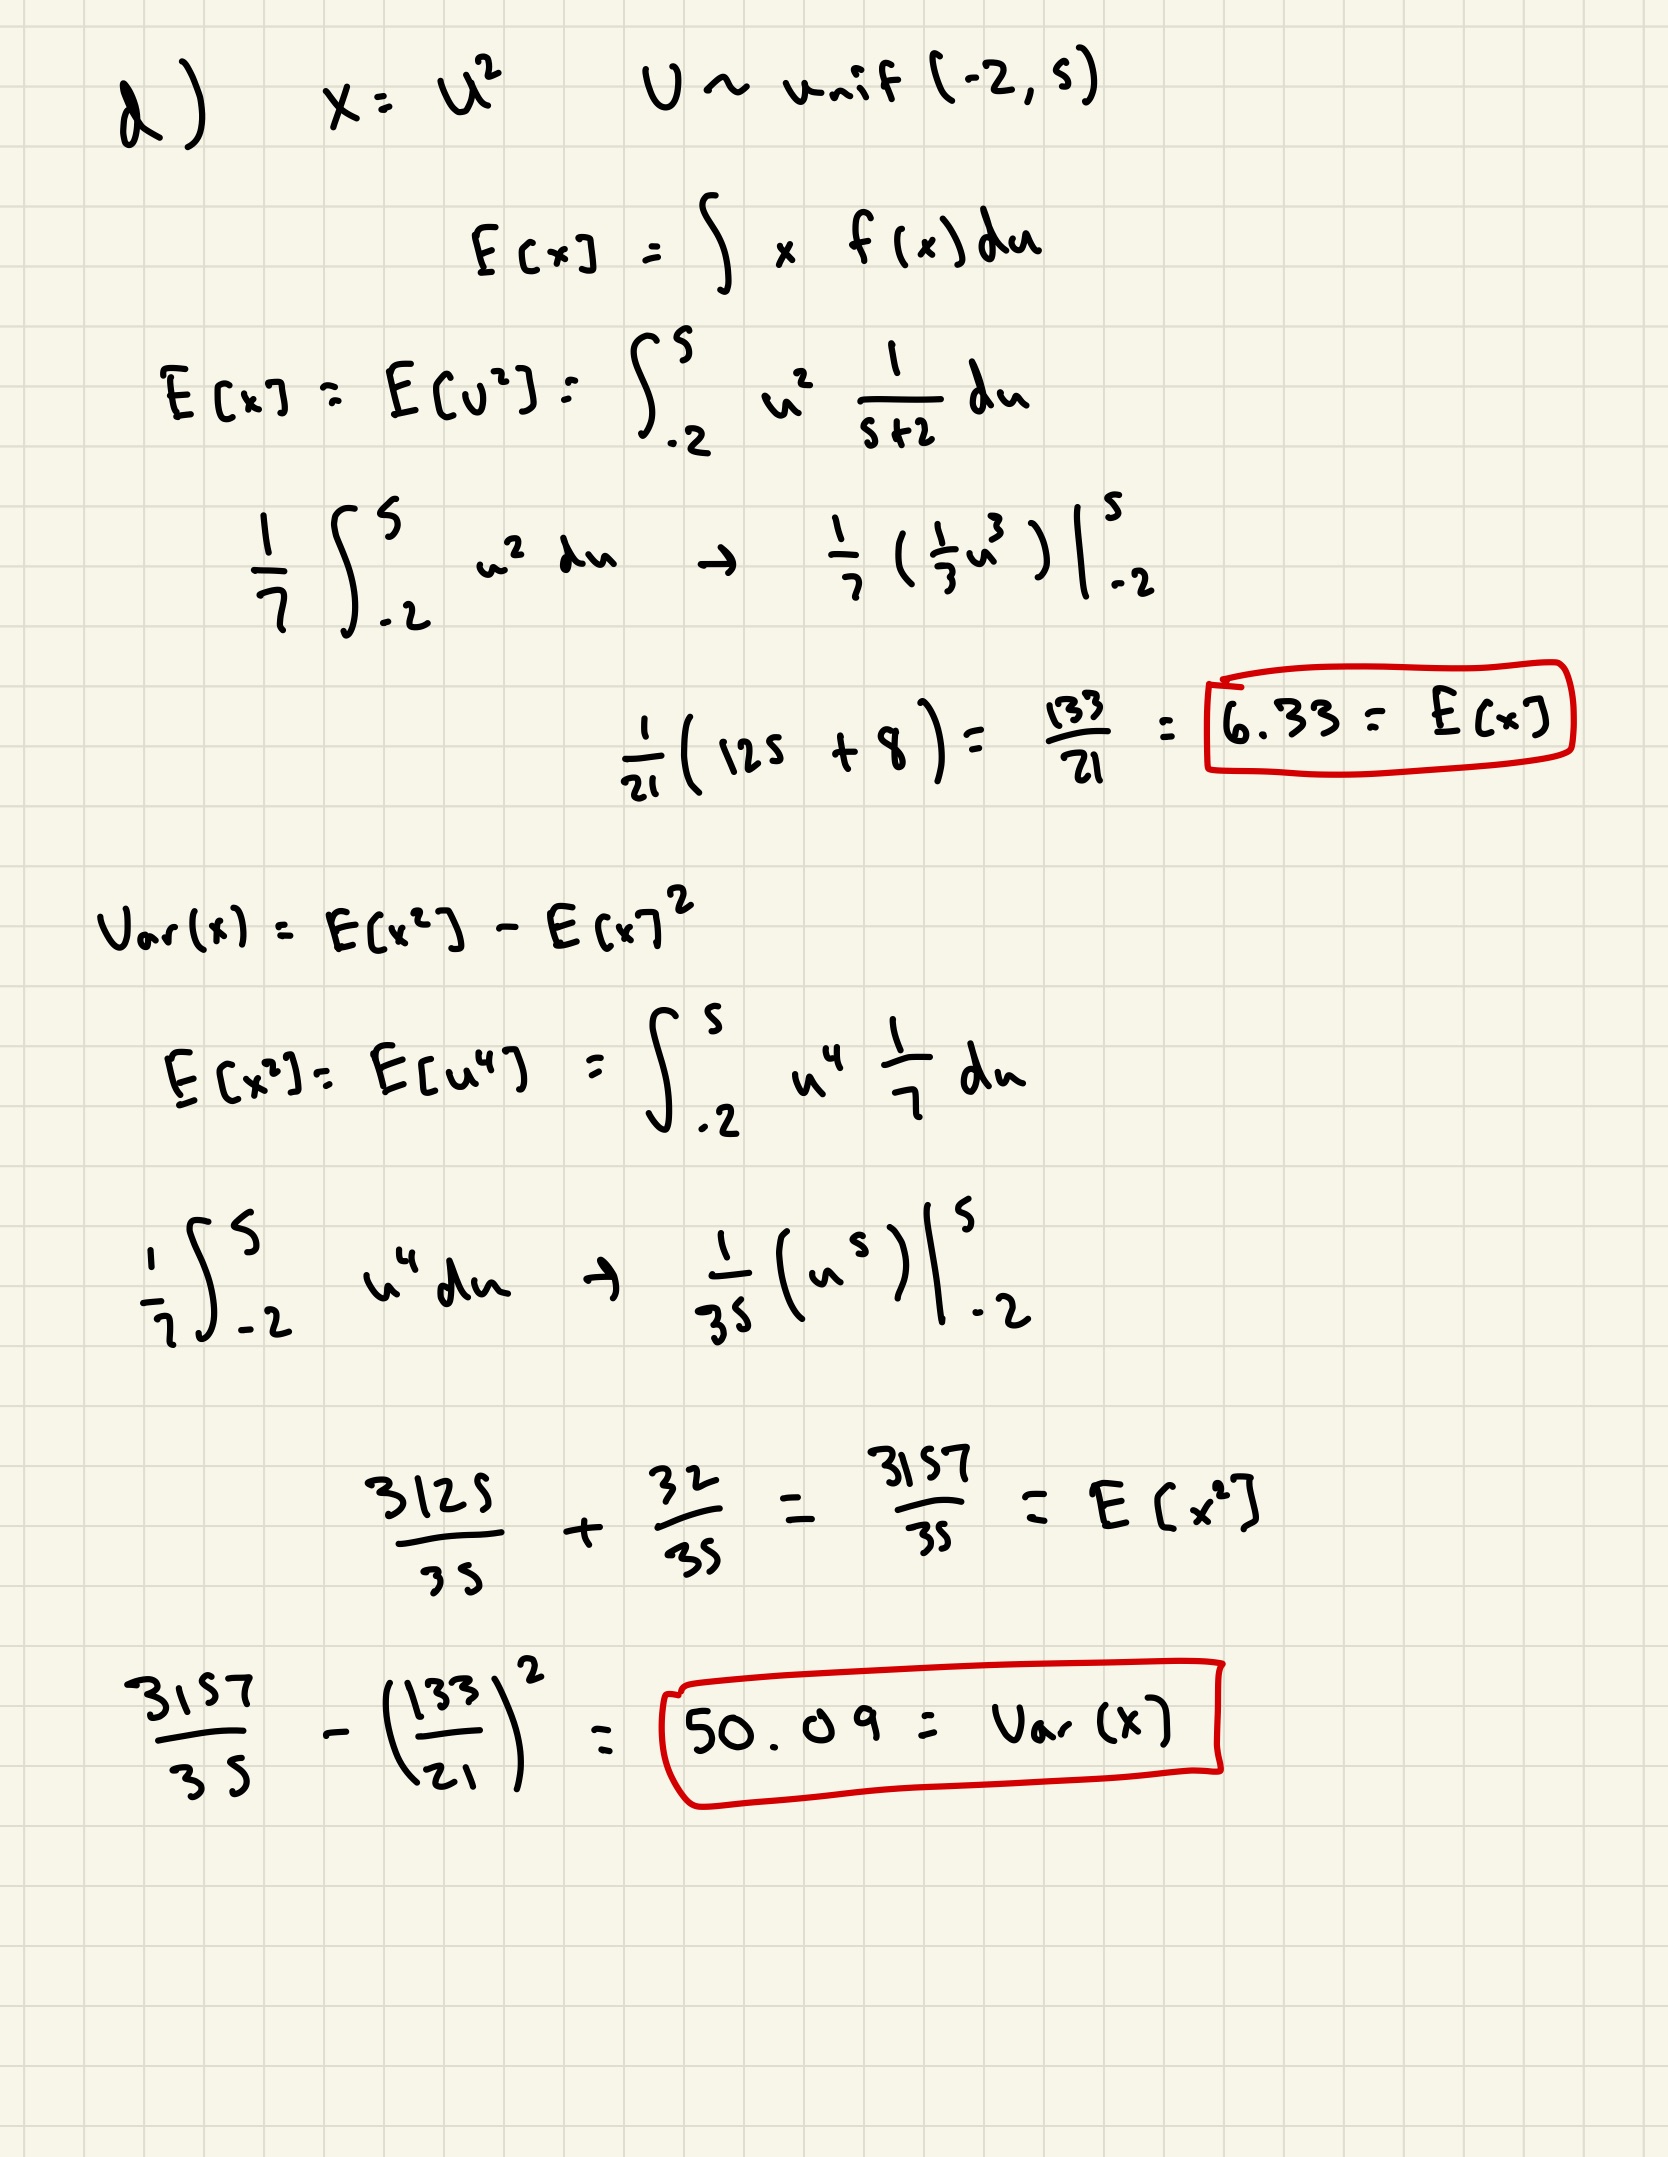 d) x = u² U ~ unif (-2, 5)
E[x] = ∫ x f(x) du
E[x] = E[U²] = ∫₋₂⁵ u² 1/(5+2) du
1/7 ∫₋₂⁵ u² du → 1/7 (1/3 u³) |₋₂⁵
1/21 (125 + 8) = 133/21 = 6.33 = E[x]
Var(x) = E[x²] - E[x]²
E[x²] = E[u⁴] = ∫₋₂⁵ u⁴ 1/7 du
1/7 ∫₋₂⁵ u⁴ du → 1/35 (u⁵) |₋₂⁵
3125/35 + 32/35 = 3157/35 = E[x²]
3157/35 - (133/21)² = 50.09 = Var(x)